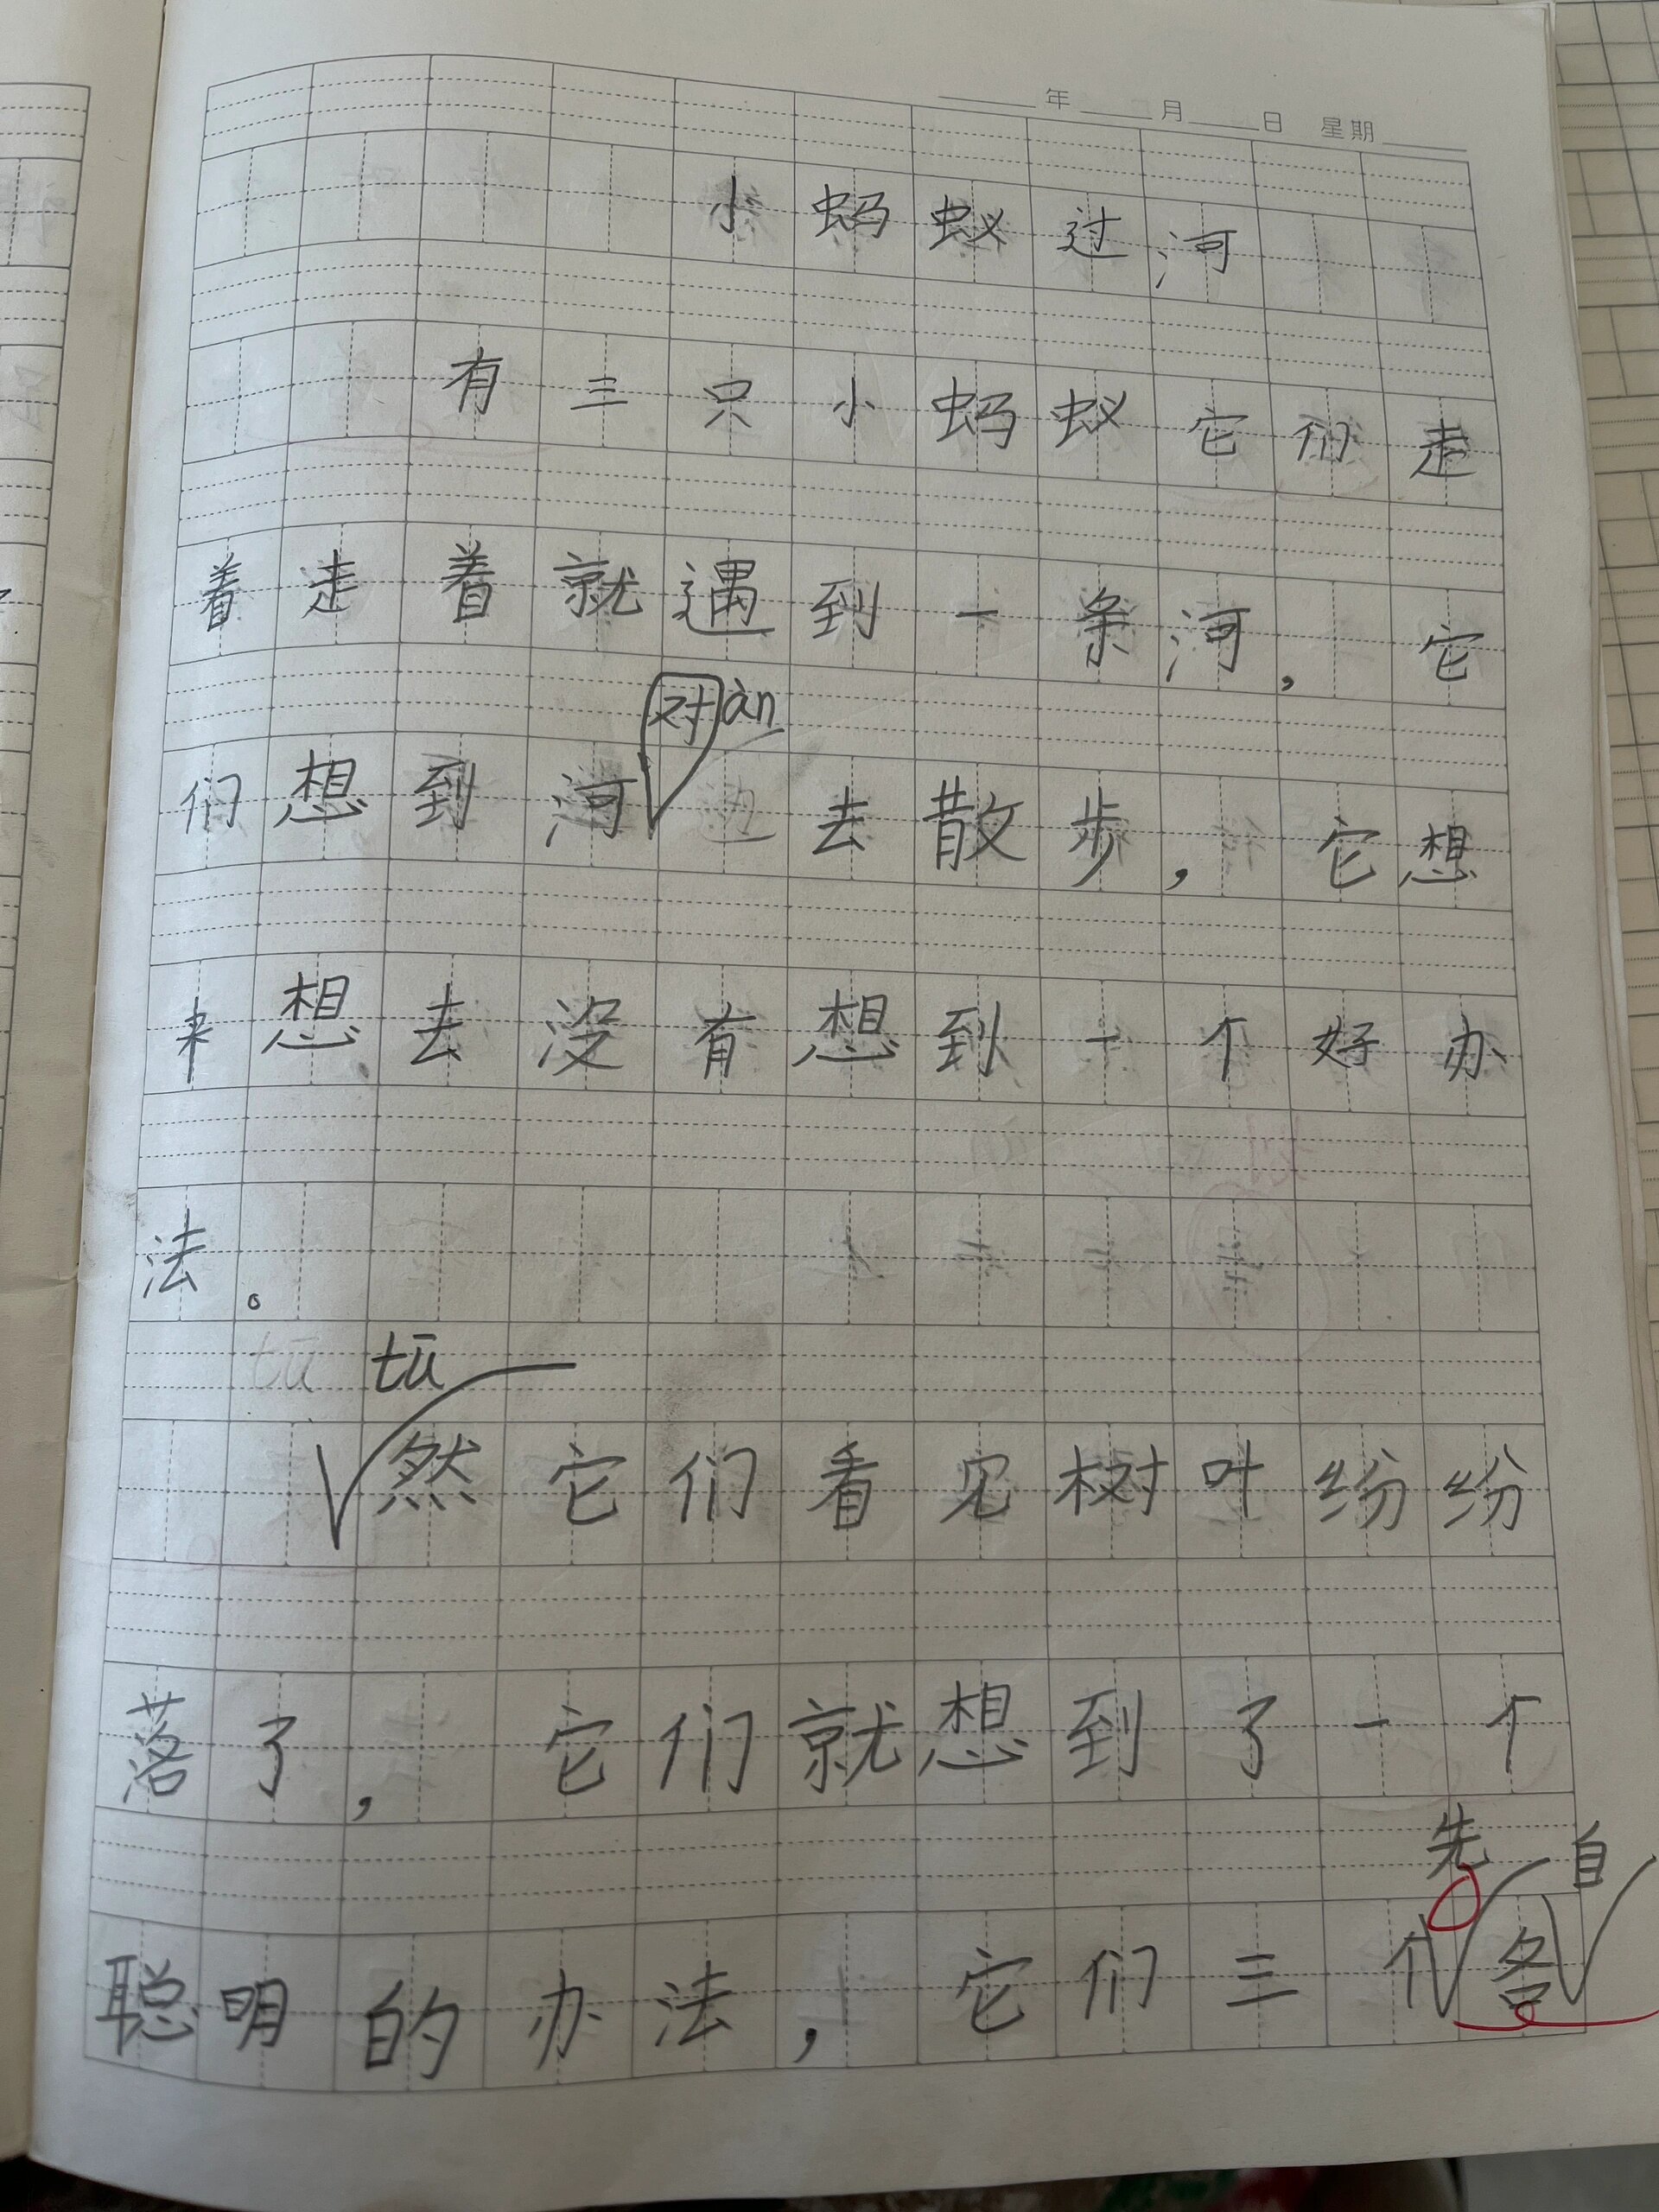 年 月 日 星期
小蚂蚁过河
有三只小蚂蚁它们走
着走着就遇到一条河，它
对àn
们想到河去散步，它想
来想去没有想到一个好办
法。
tū
然它们看见树叶纷纷
落了，它们就想到了一个
先 自
聪明的办法，它们三个各